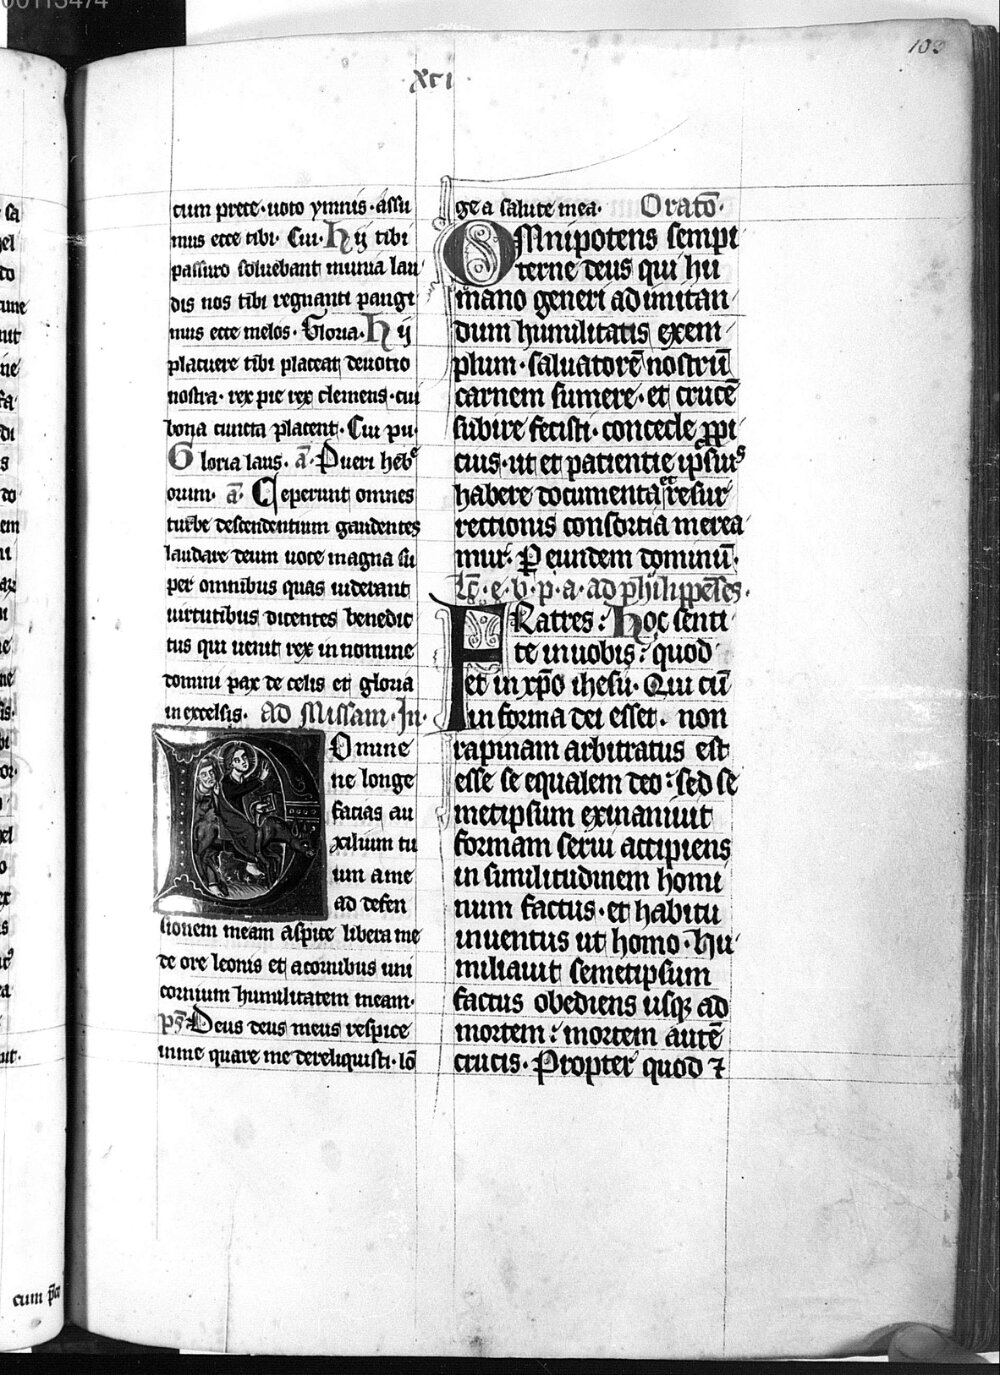 00113474
103
xci
cum prece · uoto ymnis · assu
mus ecce tibi · Cui · hij tibi
passuro soluebant munia lau
dis nos tibi regnanti pangi
mus ecce melos · Gloria · hij
placuere tibi placeat deuotio
nostra · rex pie rex clemens · cui
bona cuncta placent · Cui pu·
Gloria laus · a̅ · Pueri heb᷒e
orum · a̅ · Ceperunt omnes
turbe descendentium gaudentes
laudare deum uoce magna su
per omnibus quas uiderant
uirtutibus dicentes benedic
tus qui uenit rex in nomine
domini pax de celis et gloria
in excelsis · ad Missam · In·
Domine
ne longe
facias au
xilium tu
um a me
ad defen
sionem meam aspice libera me
de ore leonis et a cornibus uni
cornium humilitatem meam·
p̅s̅ Deus deus meus respice
in me quare me dereliquisti · lo̅
ge a salute mea· Orato̅·
OMnipotens sempi
terne deus qui hu
mano generi ad imitan
dum humilitatis exem
plum · saluatore̅ nostru̅
carnem sumere · et cruce̅
subire fecisti · concede ꝓpi
cius · ut et patientie ipsius
habere documenta et resur
rectionis consortia merea
mur· P eundem dominu̅·
Lc̅· e· b· p· a· ad philippe̅ses·
FRatres : hoc senti
te in uobis : quod
et in xp̅o ihesu · Qui cu̅
in forma dei esset · non
rapinam arbitratus est
esse se equalem deo : sed se
metipsum exinaniuit
formam serui accipiens
in similitudinem homi
num factus · et habitu
inuentus ut homo · Hu
miliauit semetipsum
factus obediens usqꝫ ad
mortem : mortem aute̅
crucis · Propter quod ⁊